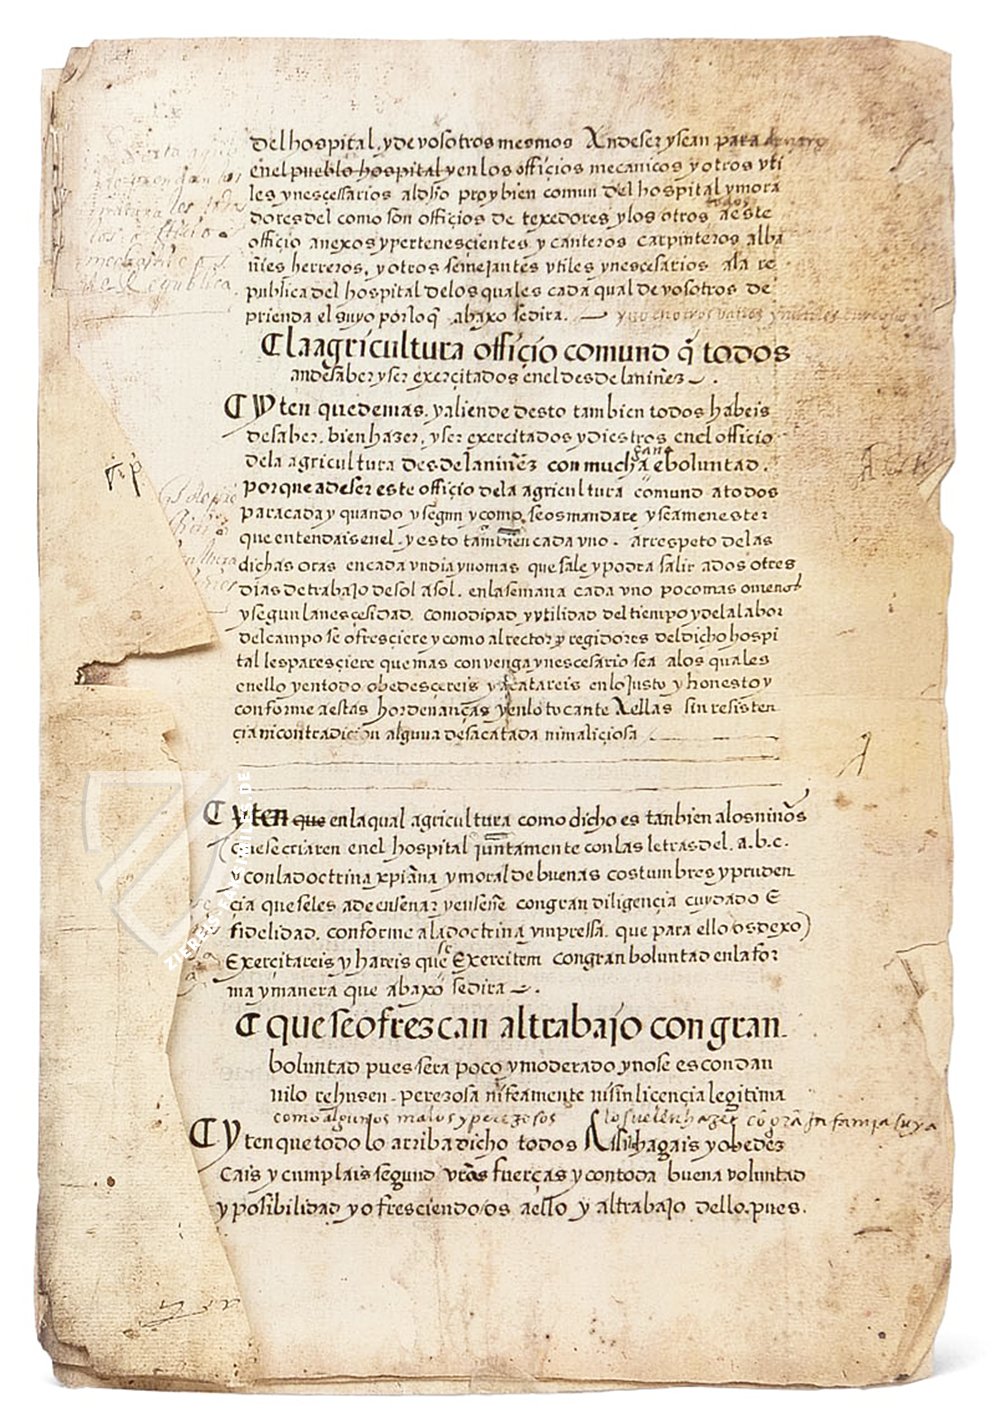 del hospital, y de vosotros mesmos Andeser y sean para
enel pueblo hospital y en los officios mecanicos y otros vti
les ynescessarios aldho pro y bien comun del hospital y mora
todos
dores del como son officios de texedores y los otros aeste
officio anexos y pertenescientes y canteros carpinteros alba
ñies herreros, y otros semejantes vtiles ynescesarios ala re
publica del hospital delos quales cada qual de vosotros de
prienda el suyo por lo q̃ abaxo se dira.
La agricultura officio comun a q̃ todos
an de saber y ser exerçitados enel desde la niñez
Yten que demas, y aliende desto tambien todos habeis
de saber, bien hazer, y ser exercitados y diestros enel officio
gana
dela agricultura desde la niñez con mucha e boluntad.
Por que a de ser este officio dela agricultura comun a todos
para cada y quando y segun y como se os mandare y sea menester
que entendais enel. y esto tambien cada vno. a respeto de las
dichas oras en cada vn dia y no mas que sale y podra salir a dos o tres
dias de trabajo de sol a sol. en la semana cada vno poco mas o menos
y segun la nescesidad, comodidad y vtilidad del tiempo y de la labor
del campo se ofresciere y como al rector y regidores del dicho hospi
tal les paresçiere que mas convenga y nescesario sea a los quales
en ello y en todo obedesçereis y acatareis en lo justo y honesto y
conforme a estas hordenanças y en lo tocante A ellas sin resisten
çia ni contradicion alguna desacatada ni maliçiosa
Yten que en la qual agricultura como dicho es tanbien a los niños
que se criaren enel hospital juntamente con las letras del .a.b.c.
y con la doctrina xpiãna y moral de buenas costumbres y pruden
cia que se les a de enseñar y enseñe con gran diligençia cuydado E
fidelidad, conforme a la doctrina ympressa, que para ello os dexo)
se
Exercitareis y hareis que Exerciten con gran boluntad en la for
ma y manera que abaxo se dira
que se ofrezcan al trabajo con gran
boluntad pues sera poco y moderado y no se escondan
ni lo rehusen perezosa ni feamente ni sin licençia legitima
como algunos malos y perezosos lo suelen hazer cõ grã Infamia suya
Yten que todo lo arriba dicho todos Assi hagais y obedez
cais y cumplais segund vrãs fuerças y con toda buena voluntad
y posibilidad y ofresciendo os aello y al trabajo dello. pues.
ZIEREIS-FACSIMILES.DE